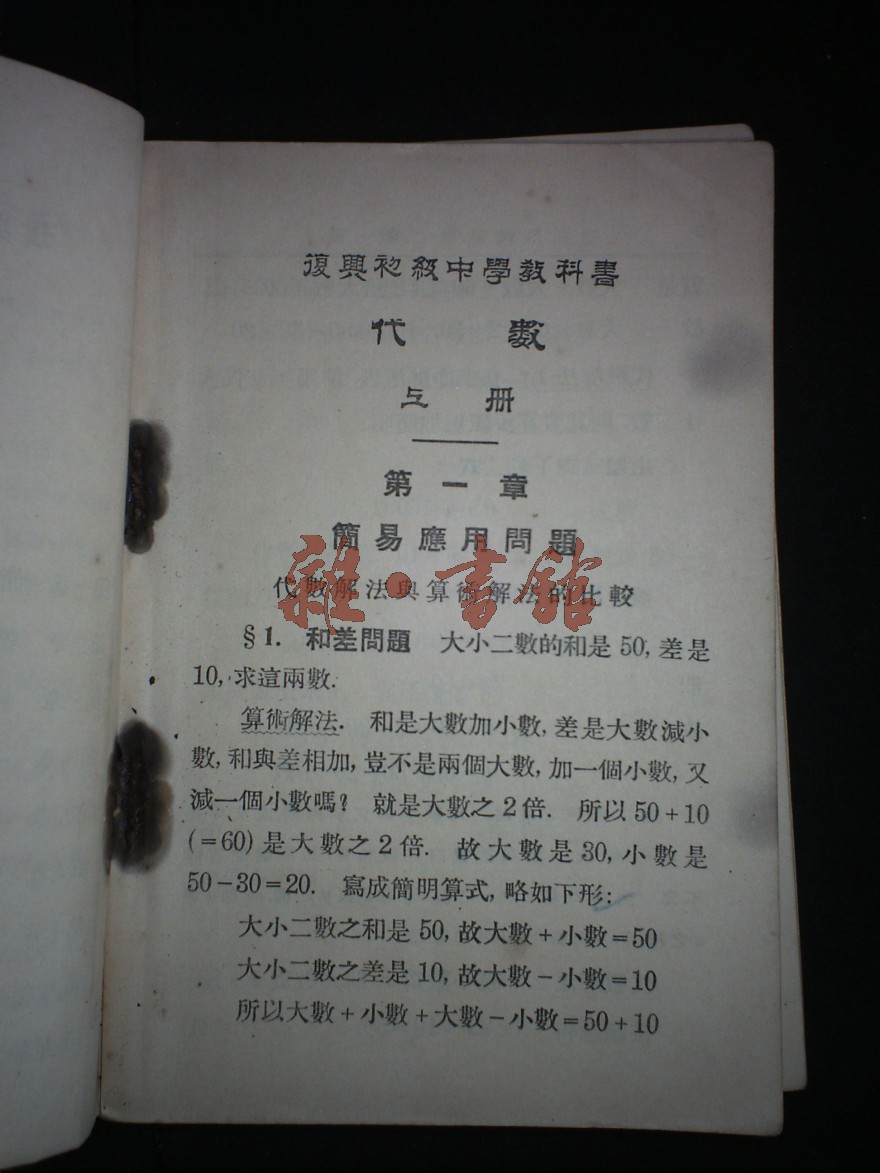 復興初級中學教科書
代數
上册
第一章
簡易應用問題
代數解法與算術解法的比較
§1. 和差問題 大小二數的和是50,差是
10,求這兩數.
算術解法. 和是大數加小數,差是大數減小
數,和與差相加,豈不是兩個大數,加一個小數,又
減一個小數嗎? 就是大數之2倍. 所以50+10
(=60)是大數之2倍. 故大數是30,小數是
50-30=20. 寫成簡明算式,略如下形:
大小二數之和是50,故大數+小數=50
大小二數之差是10,故大數-小數=10
所以大數+小數+大數-小數=50+10
雜·書館